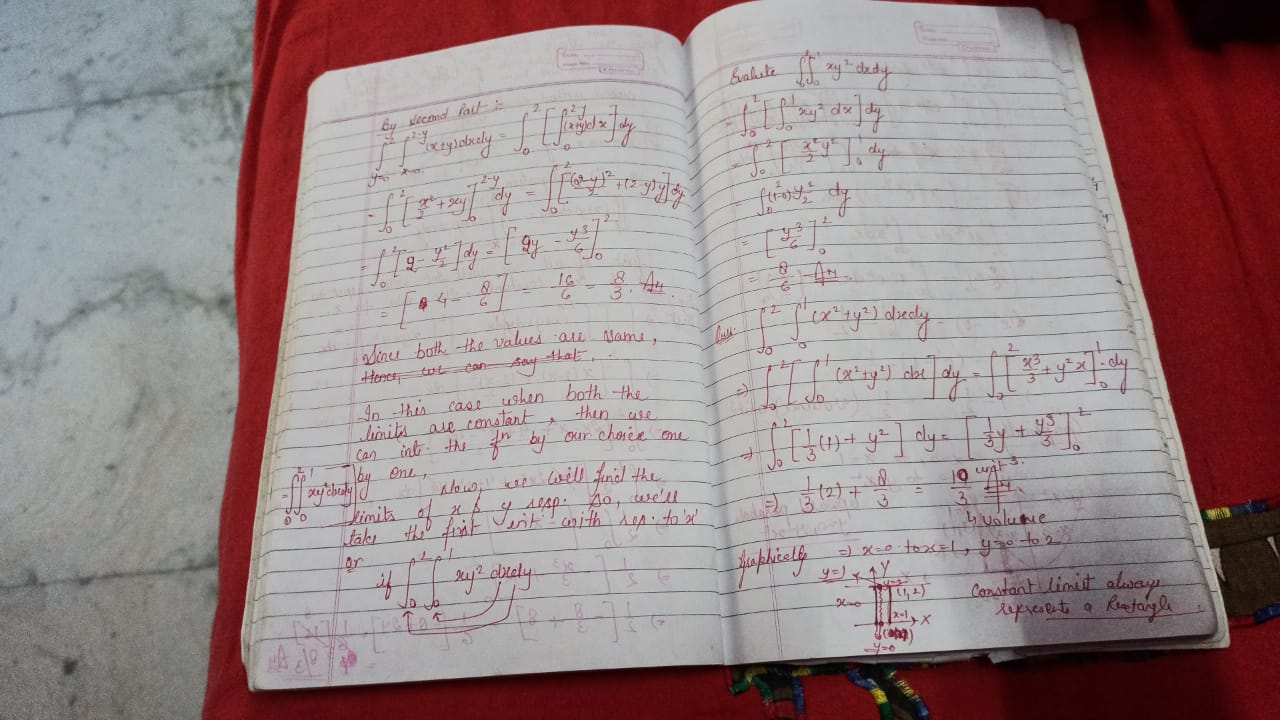 By second Part :-
∫_{y=0}^{2} ∫_{x=0}^{2-y} (x+y) dxdy = ∫_0^2 [∫_0^{2-y} (x+y)dx] dy
= ∫_0^2 [x²/2 + xy]_0^{2-y} dy = ∫_0^2 [(2-y)²/2 + (2-y)y] dy
= ∫_0^2 [2 - y²/2] dy = [2y - y³/6]_0^2
= [4 - 8/6] = 16/6 = 8/3. Ans.
Since both the values are same,
Hence, we can say that
In this case when both the
limits are constant, then we
can int. the fⁿ by our choice one
by one,
= ∫_0^2 ∫_0^1 xy² dxdy
Now, we will find the
limits of x & y resp. So, we'll
take the first int. with res. to 'x'
or
if ∫_0^2 ∫_0^1 xy² dxdy
Evaluate ∫_0^2 ∫_0^1 xy² dxdy
= ∫_0^2 [∫_0^1 xy² dx] dy
= ∫_0^2 [x²y²/2]_0^1 dy
= ∫_0^2 (1-0) y²/2 dy
= [y³/6]_0^2
= 8/6 Ans.
Ques. ∫_0^2 ∫_0^1 (x²+y²) dxdy
⇒ ∫_0^2 [∫_0^1 (x²+y²) dx] dy = ∫_0^2 [x³/3 + y²x]_0^1 . dy
⇒ ∫_0^2 [1/3 (1) + y²] dy = [1/3 y + y³/3]_0^2
⇒ 1/3 (2) + 8/3 = 10/3 unit³.
Ans.
↳ volume
Graphically ⇒ x=0 to x=1, y=0 to 2
y=1 Y
y=2
(1, 2)
x=0
x=1
X
y=0
Constant limit always
represents a Rectangle.